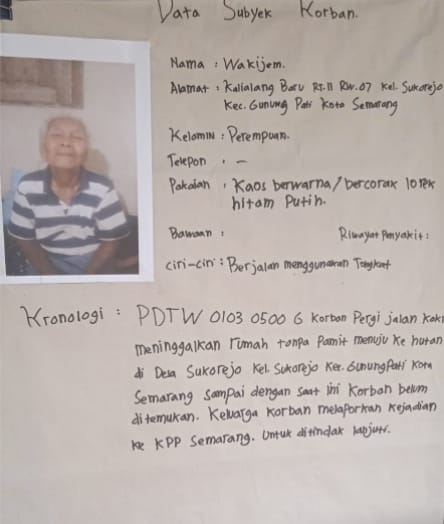 Data Subyek Korban.
Nama : Wakijem.
Alamat : Kalialang Baru RT.11 RW.07 Kel. Sukorejo
Kec. Gunung Pati Kota Semarang
Kelamin : Perempuan.
Telepon : -
Pakaian : Kaos berwarna/bercorak lorek
hitam Putih.
Bawaan : Riwayat Penyakit :
Ciri-ciri : Berjalan menggunakan Tongkat
Kronologi : PDTW 0103 0500 G Korban Pergi jalan kaki
meninggalkan rumah tanpa Pamit menuju ke hutan
di Desa Sukorejo Kel. Sukorejo Kec. Gunung Pati Kota
Semarang sampai dengan saat ini Korban belum
ditemukan. Keluarga Korban melaporkan kejadian
ke KPP Semarang. Untuk ditindak lanjuti.